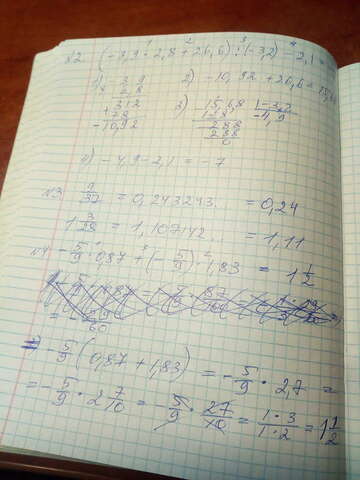 №2. (-3,9 · 2,8 + 26,6) : (-3,2) - 2,1 =
1) -3,9
× 2,8
+ 312
78
-10,92
2) -10,92 + 26,6 = 15,68
3) -15,68 |-3,2
128 -4,9
288
288
0
4) -4,9 - 2,1 = -7
№3 9/37 = 0,243243... = 0,24
1 3/28 = 1,107142... = 1,11
№4 -5/9 · 0,87 + (-5/9) · 1,83 = 1 1/2
-5/9 (0,87 + 1,83) = -5/9 · 2,7 =
= -5/9 · 2 7/10 = -5/9 · 27/10 = 1·3/1·2 = 1 1/2